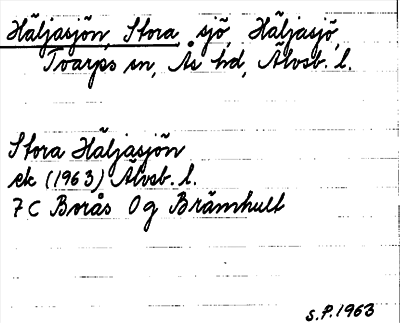 Häljasjön, Stora, sjö, Häljasjö,
Tvarps sn, Ås hd, Älvsb. l.
Stora Häljasjön
ek (1963) Älvsb. l.
7C Borås 0g Brämhult
S.P. 1963